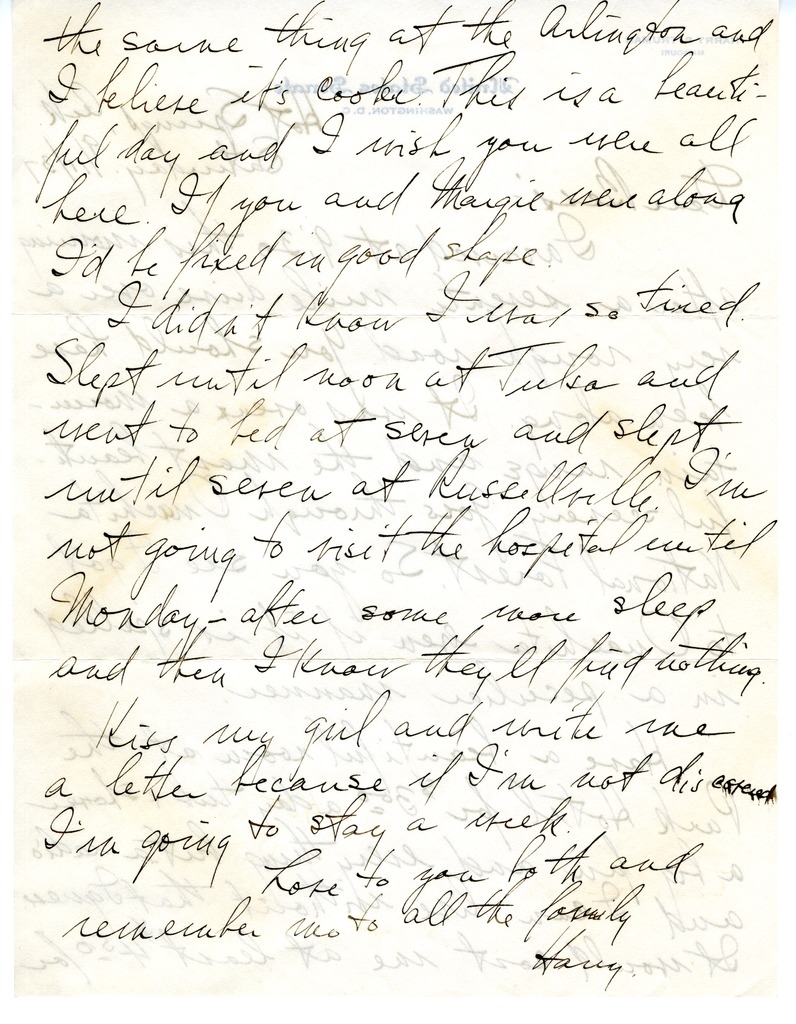 the same thing at the Arlington and
I believe it's cooler. This is a beauti-
ful day and I wish you were all
here. If you and Margie were along
I'd be fixed in good shape.
I didn't know I was so tired.
Slept until noon at Tulsa and
went to bed at seven and slept
until seven at Russellville. I'm
not going to visit the hospital until
Monday - after some more sleep
and then I know they'll find nothing.
Kiss my girl and write me
a letter because if I'm not discovered
I'm going to stay a week.
Love to you both and
remember me to all the family
Harry.